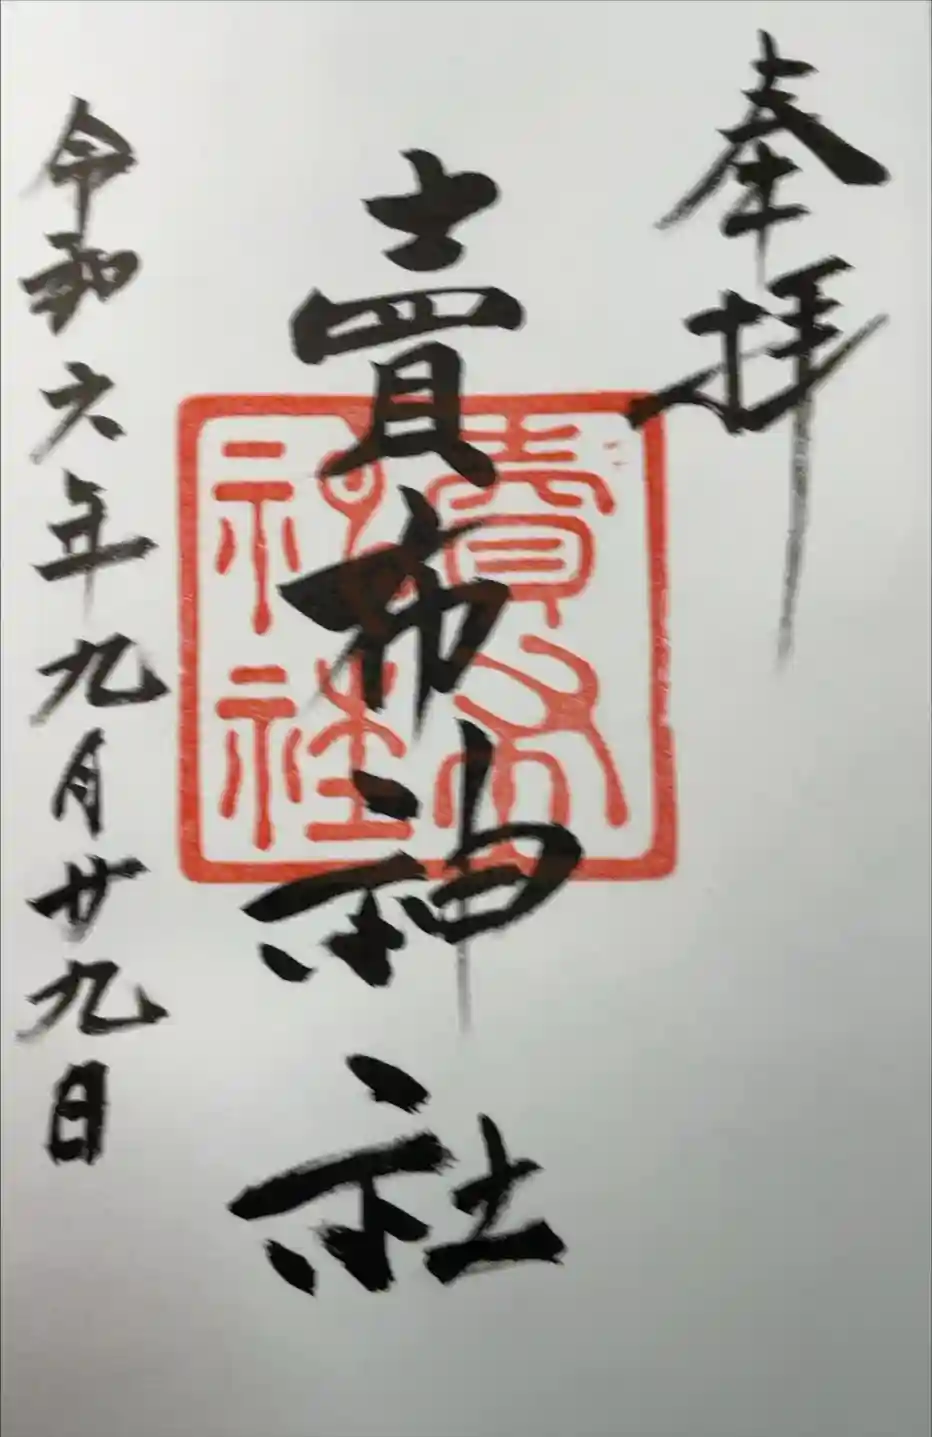 奉拝
賣布神社
賣布神社
令和六年九月廿九日